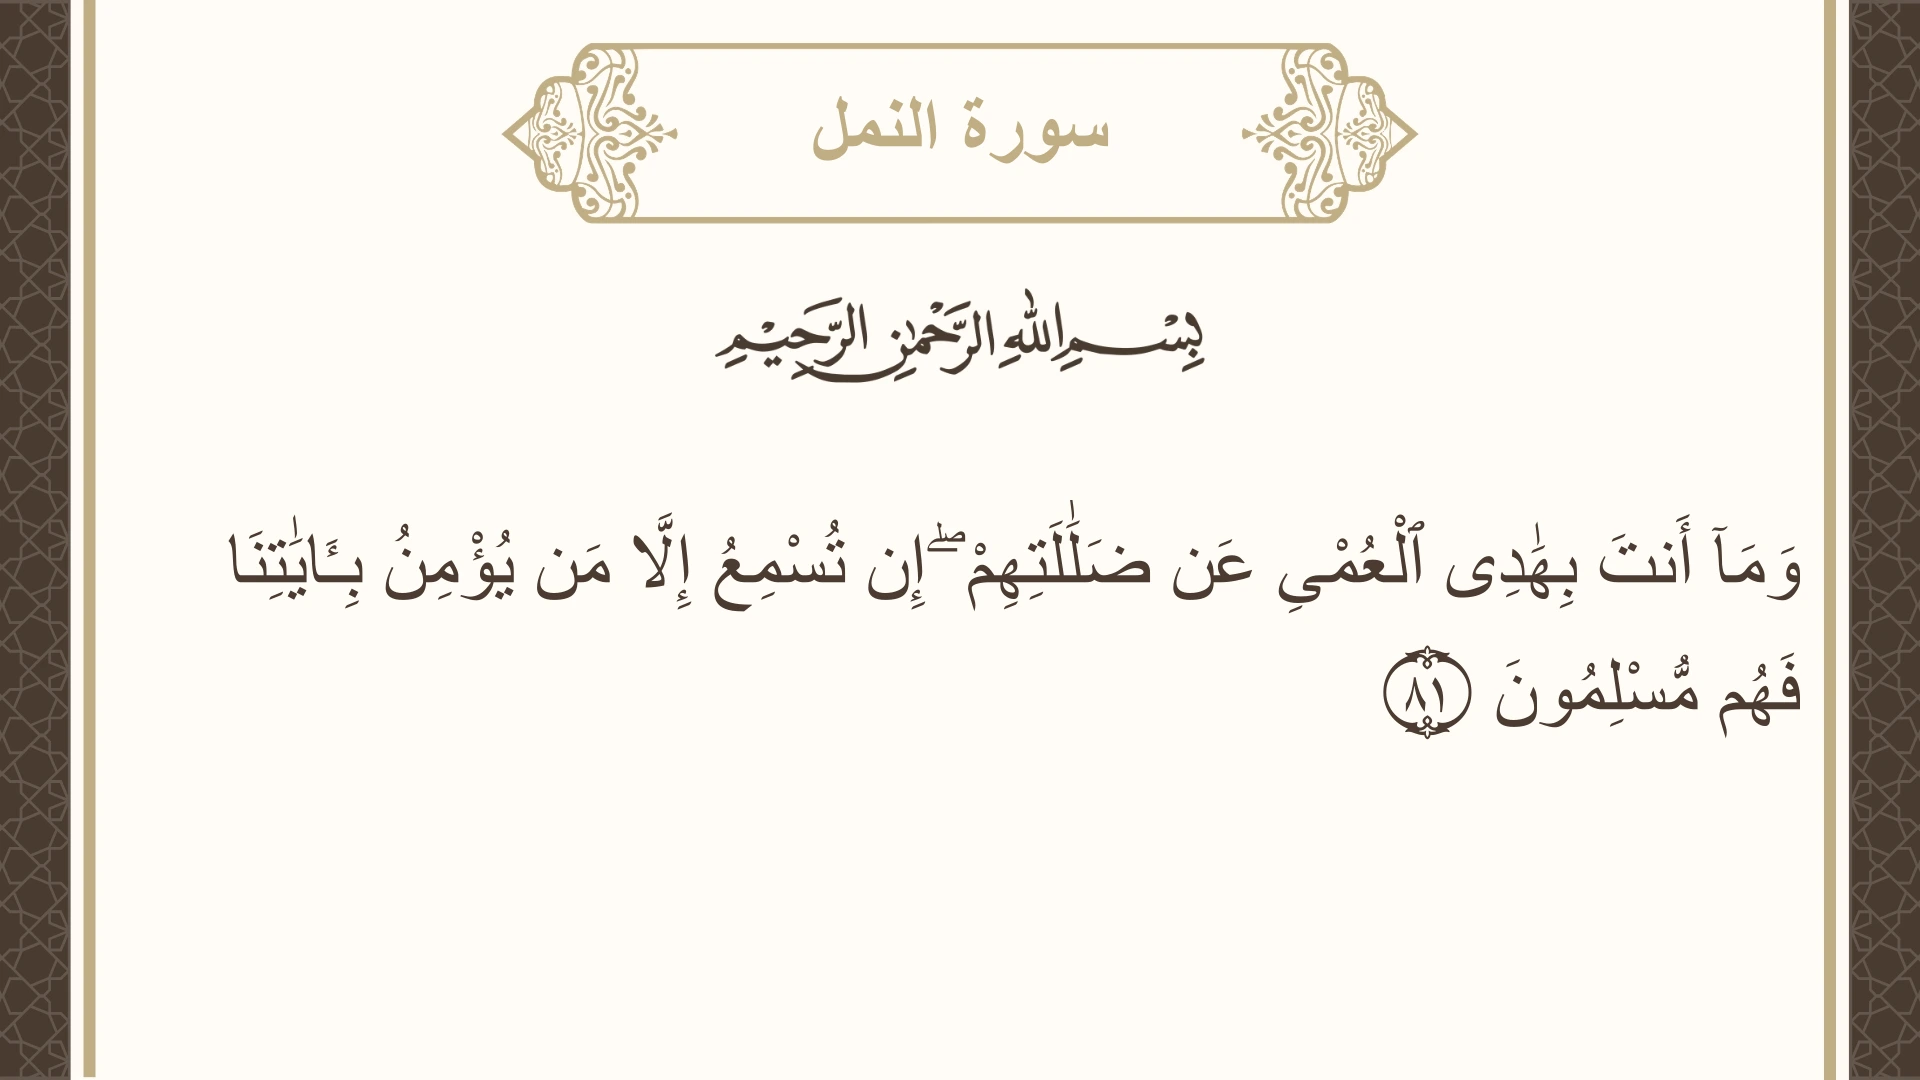 سورة النمل
بِسْمِ اللهِ الرَّحْمٰنِ الرَّحِيْمِ
وَمَآ أَنتَ بِهَٰدِى ٱلْعُمْىِ عَن ضَلَٰلَتِهِمْ ۖ إِن تُسْمِعُ إِلَّا مَن يُؤْمِنُ بِـَٔايَٰتِنَا
فَهُم مُّسْلِمُونَ ٨١